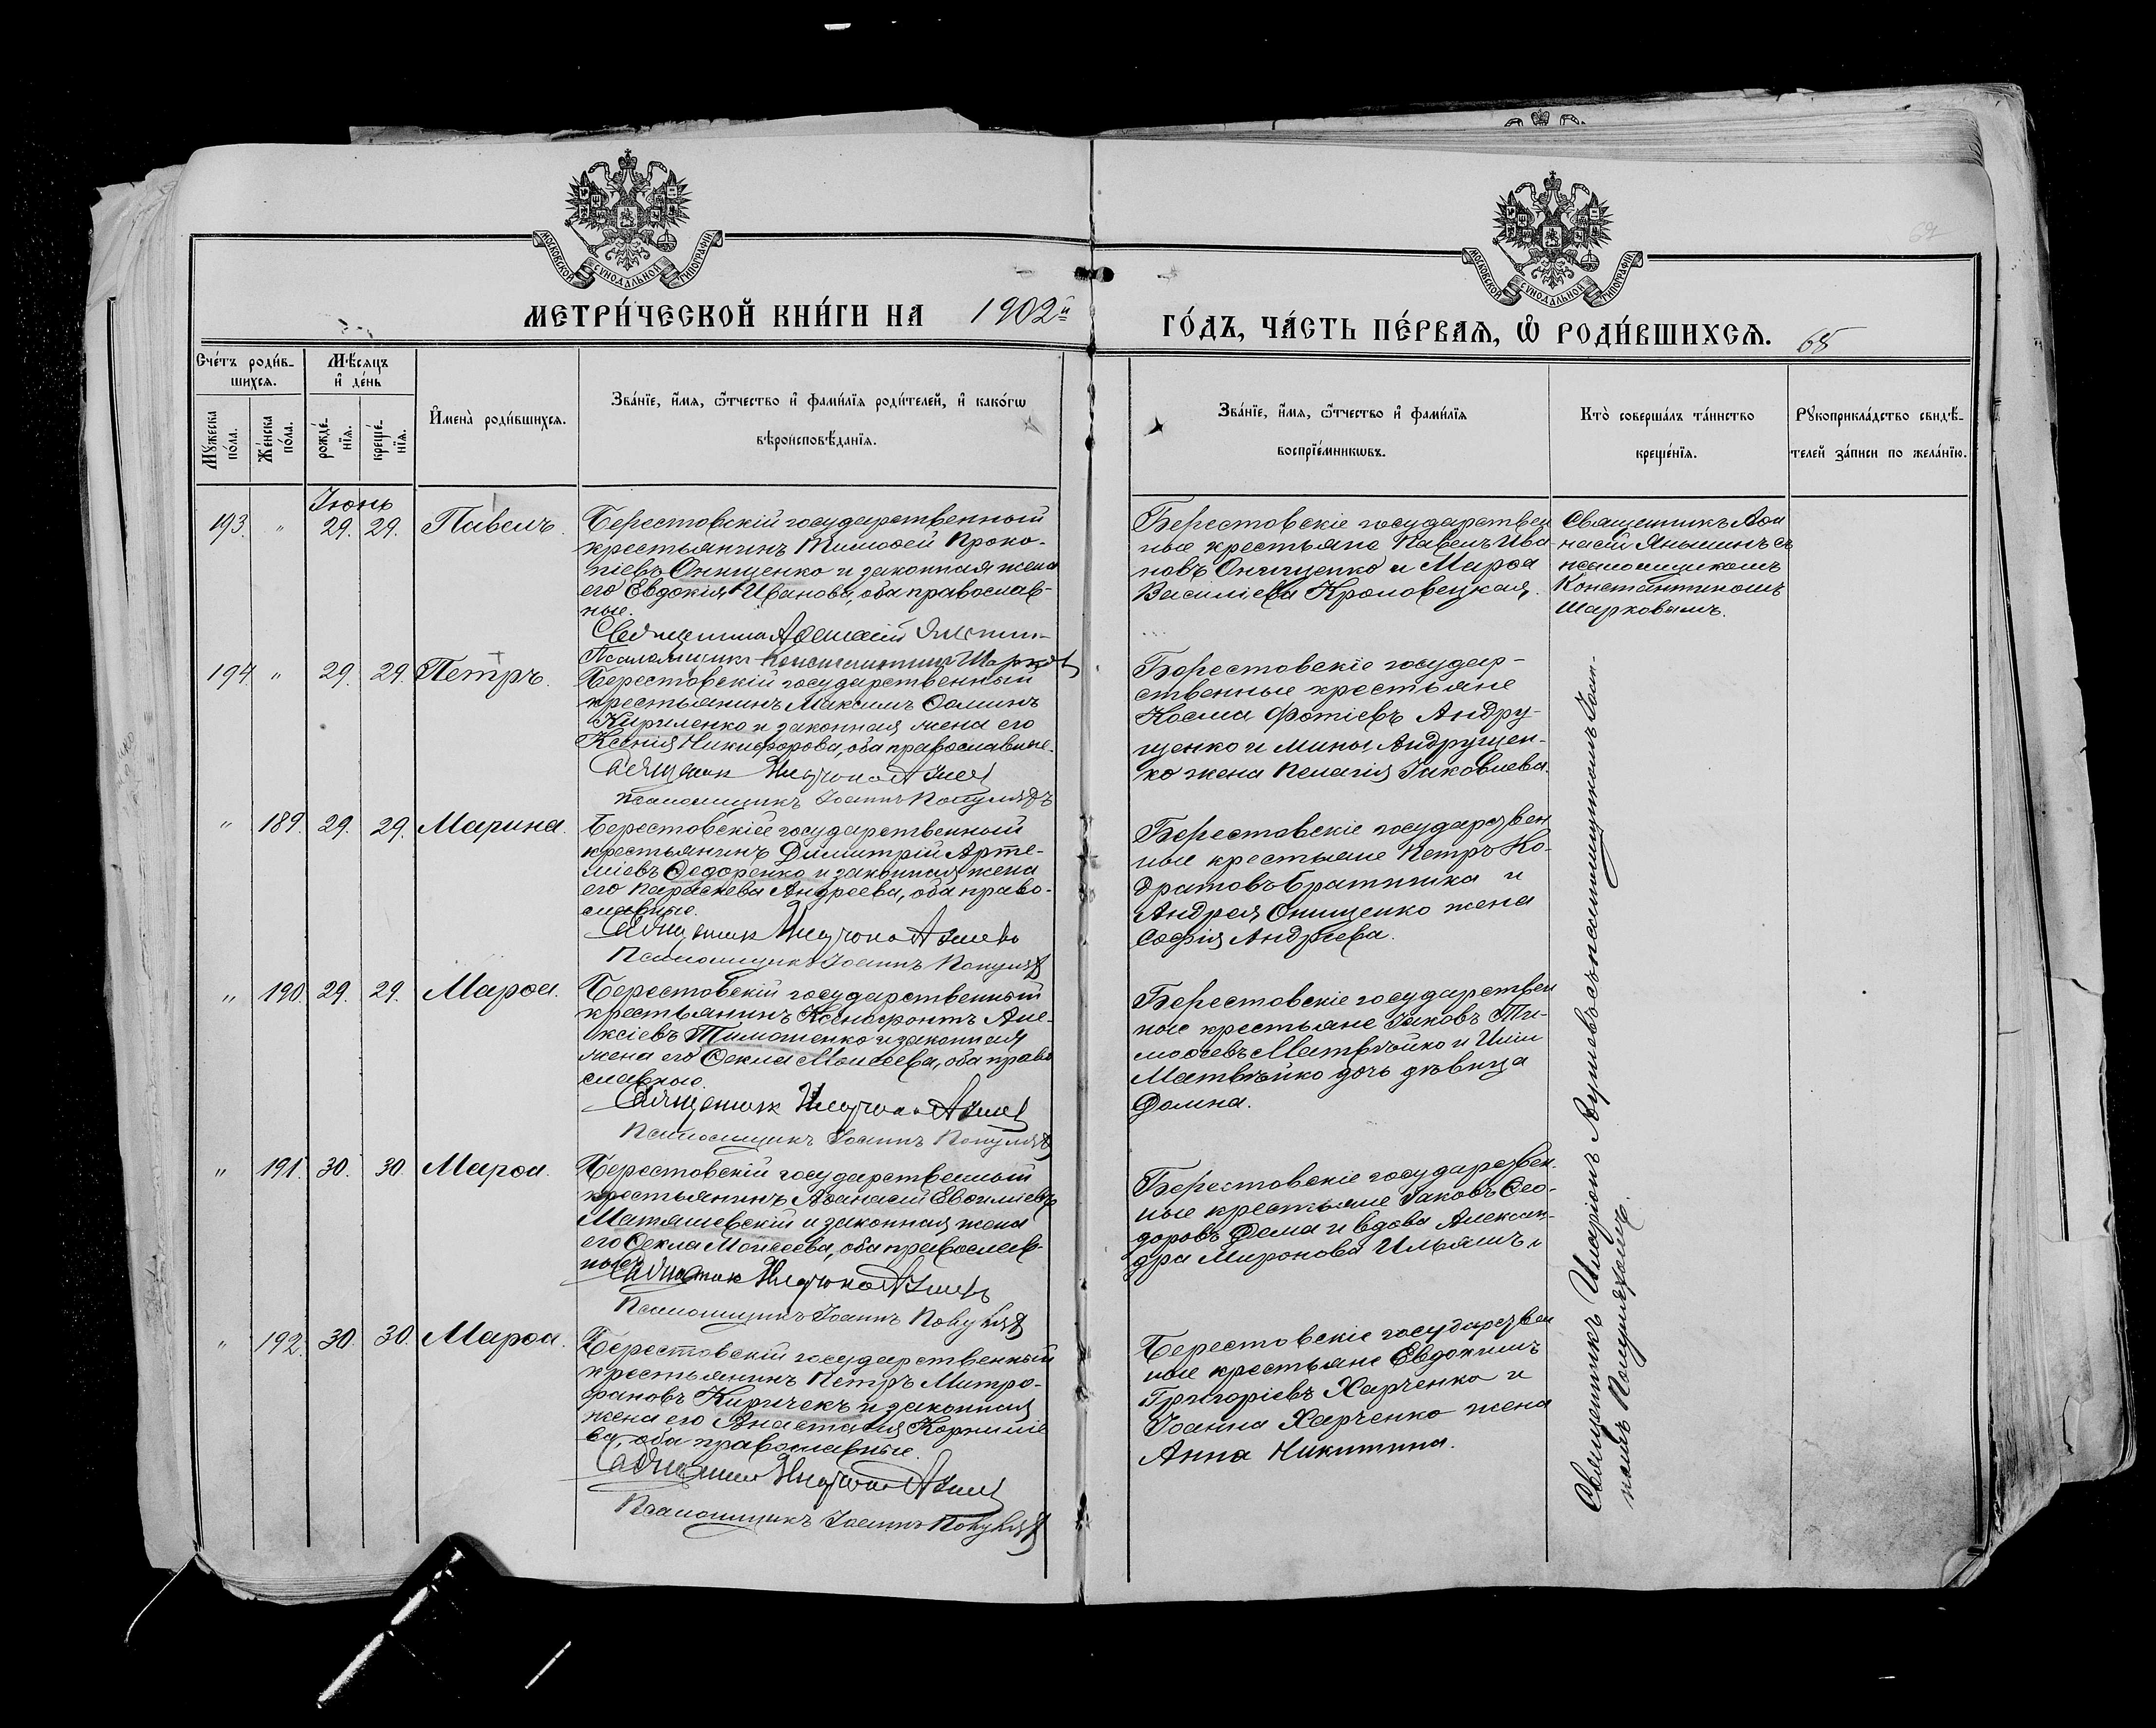 МОСКОВСКОЙ СѴНОДАЛЬНОЙ ТИПОГРАФІИ
МОСКОВСКОЙ СѴНОДАЛЬНОЙ ТИПОГРАФІИ
МЕТРИ́ЧЕСКОЙ КНИ́ГИ НА 1902й
ГО́ДЪ, ЧА́СТЬ ПЕ́РВАѦ, Ѡ РОДИ́ВШИХСѦ. 68
Сче́тъ роди́в-
шихсѧ.
Мѣ́сѧцъ
и҆ де́нь
Мꙋ́жеска
по́ла.
Же́нска
по́ла.
рожде́-
нїѧ.
креще́-
нїѧ.
И҆мена̀ роди́вшихсѧ.
Зва́нїе, и҆́мѧ, ѻ҆́тчество и҆ фами́лїѧ роди́телей, и҆ како́гѡ
вѣроисповѣ́данїѧ.
Зва́нїе, и҆́мѧ, ѻ҆́тчество и҆ фами́лїѧ
воспрїе́мникѡвъ.
Кто̀ соверша́лъ та́инство
креще́нїѧ.
Рꙋкоприкла́дство свидѣ́-
телей за́писи по жела́нїю.
Іюнь
193. " 29. 29. Павелъ.
Берестовскій государственный
крестьянинъ Тимоѳей Проко-
піевъ Онищенко и законная жена
его Евдокія Иванова, оба православ-
ные.
Священникъ Аѳанасій
Псаломщикъ Константинъ Шарковъ
Берестовскіе государствен
ные крестьяне Павелъ Ива
новъ Онищенко и Марѳа
Василіева Кроловецкая.
Священникъ Аѳа
насій Яньшинъ съ
псаломщикомъ
Константиномъ
Шарковымъ.
194 " 29. 29. Петръ.
Берестовскій государственный
крестьянинъ Максимъ Ѳоминъ
Кириленко и законная жена его
Ксенія Никифорова, оба православные.
Священникъ
Псаломщикъ Іоаннъ
Берестовскіе государ-
ственные крестьяне
Косма Фотіевъ Андру-
щенко и Мины Андрущен-
ко жена Пелагія Іаковлева.
" 189. 29. 29. Марина.
Берестовскій государственный
крестьянинъ Димитрій Арте-
міевъ Ѳедоренко и законная жена
его Параскева Андреева, оба право-
славные.
Священникъ
Псаломщикъ Іоаннъ
Берестовскіе государствен
ные крестьяне Петръ Ко-
дратовъ Братчика и
Андрея Онищенко жена
Софія Андреева.
" 190. 29. 29. Марѳа.
Берестовскій государственный
крестьянинъ Ксенофонтъ Але-
ксіевъ Тимошенко и законная
жена его Ѳекла Моисеева, оба право
славные.
Священникъ
Псаломщикъ Іоаннъ
Берестовскіе государствен
ные крестьяне Іаковъ Ти-
моѳеевъ Матвѣйко и Иліи
Матвѣйко дочь дѣвица
Домна.
" 191. 30. 30. Марѳа.
Берестовскій государственный
крестьянинъ Аѳанасій Евѳиміевъ
Матяшевскій и законная жена
его Ѳекла Моисеева, оба православ-
ные.
Священникъ
Псаломщикъ Іоаннъ
Берестовскіе государствен
ные крестьяне Іаковъ Ѳео-
доровъ Дема и вдова Алексан-
дра Миронова
" 192. 30. 30. Марѳа.
Берестовскій государственный
крестьянинъ Петръ Митро-
фановъ Киричекъ и законная
жена его Анастасія Корниліе
ва, оба православные.
Священникъ
Псаломщикъ Іоаннъ
Берестовскіе государствен
ные крестьяне Евдокимъ
Григоріевъ Харченко и
Іоанна Харченко жена
Анна Никитина.
Священникъ Иларіонъ съ псаломщикомъ Іоан-
номъ